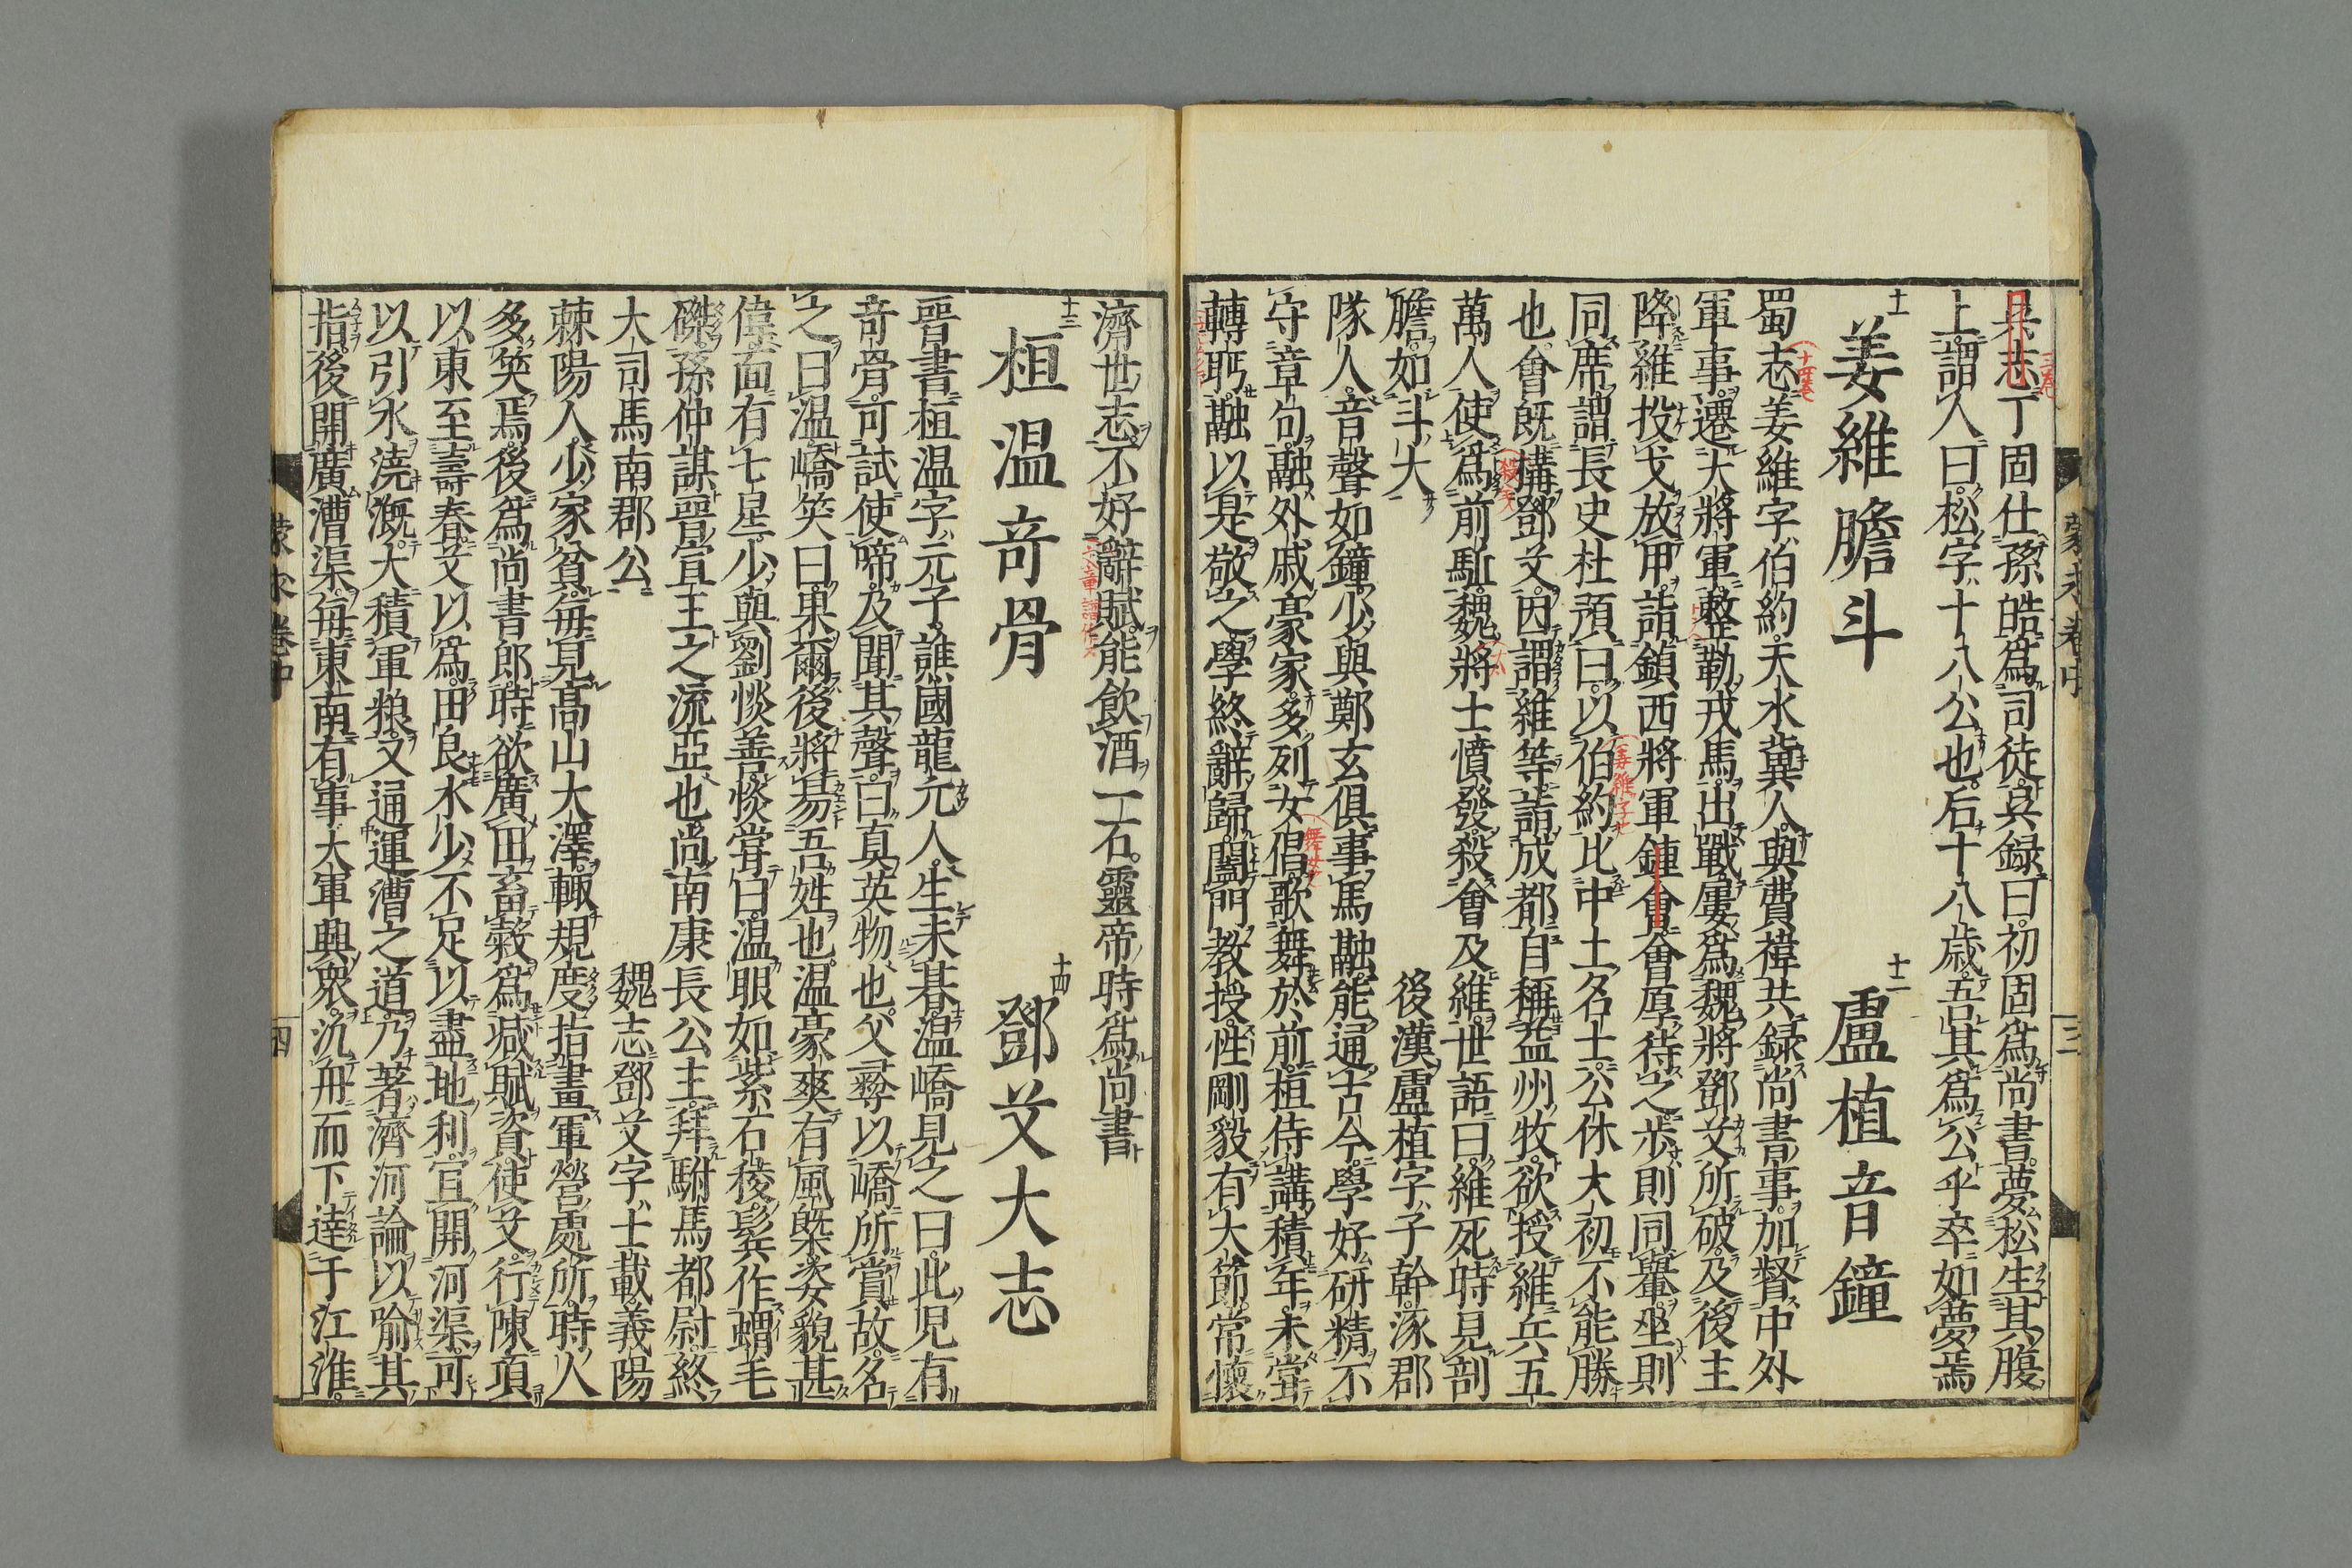 吴志丁固仕孫皓爲司徒吴録曰初固爲尚書夢松生其腹
上謂人曰松字十八公也后十八歳吾其爲公乎卒如夢焉
十一 姜維膽斗 十二 盧植音鐘
蜀志姜維字伯約天水冀人與費禕共録尚書事加督中外
軍事遷大將軍整勒戎馬出戰屢爲魏將鄧艾所破及後主
降維投戈放甲詣鎮西將軍鍾會會厚待之歩則同轝坐則
同席謂長史杜預曰以伯約比中土名士公休太初不能勝
也會既構鄧艾因謂維等詣成都自稱益州牧欲授維兵五
萬人使爲前駈魏將士憤發殺會及維世語曰維死時見剖
膽如斗大 後漢盧植字子幹涿郡
隊人音聲如鐘少與鄭玄俱事馬融能通古今學好研精不
守章句融外戚豪家多列女倡歌舞於前植侍講積年未甞
轉眄融以是敬之學終辭歸闔門教授性剛毅有大節常懷
濟世志不好辭賦能飲酒一石靈帝時爲尚書
十三 桓温奇骨 十四 鄧艾大志
晋書桓温字元子譙國龍亢人生未朞温嶠見之曰此兒有
奇骨可試使啼及聞其聲曰真英物也父彛以嶠所賞故名
之曰温嶠笑曰果爾後將易吾姓也温豪爽有風槩姿貌甚
偉面有七星少與劉惔善惔甞曰温眼如紫石稜鬚作蝟毛
磔孫仲謀晋宣王之流亞也尚南康長公主拜駙馬都尉終
大司馬南郡公 魏志鄧艾字士載義陽
棘陽人少家貧毎見高山大澤輙規度指畫軍營處所時人
多笑焉後爲尚書郎時欲廣田畜穀爲滅賊資使艾行陳項
以東至壽春艾以爲田良水少不足以盡地利宜開河渠可
以引水澆漑大積軍粮又通運漕之道乃著濟河論以喩其
指後開廣漕渠毎東南有事大軍興衆汎舟而下達于江淮
蒙求卷中 三
蒙求卷中 四